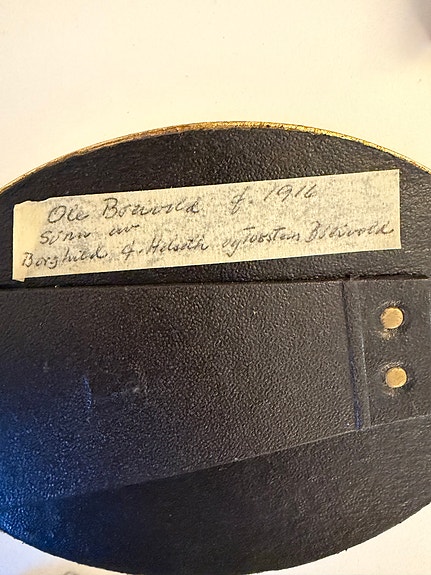 Ole Borvold f. 1916
Sønn av
Borghild f. Helseth og Torsten Borvold